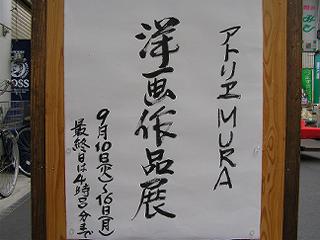 アトリエMURA
洋画作品展
9月10日(火)~16日(月)
最終日は4時30分まで
BOSS